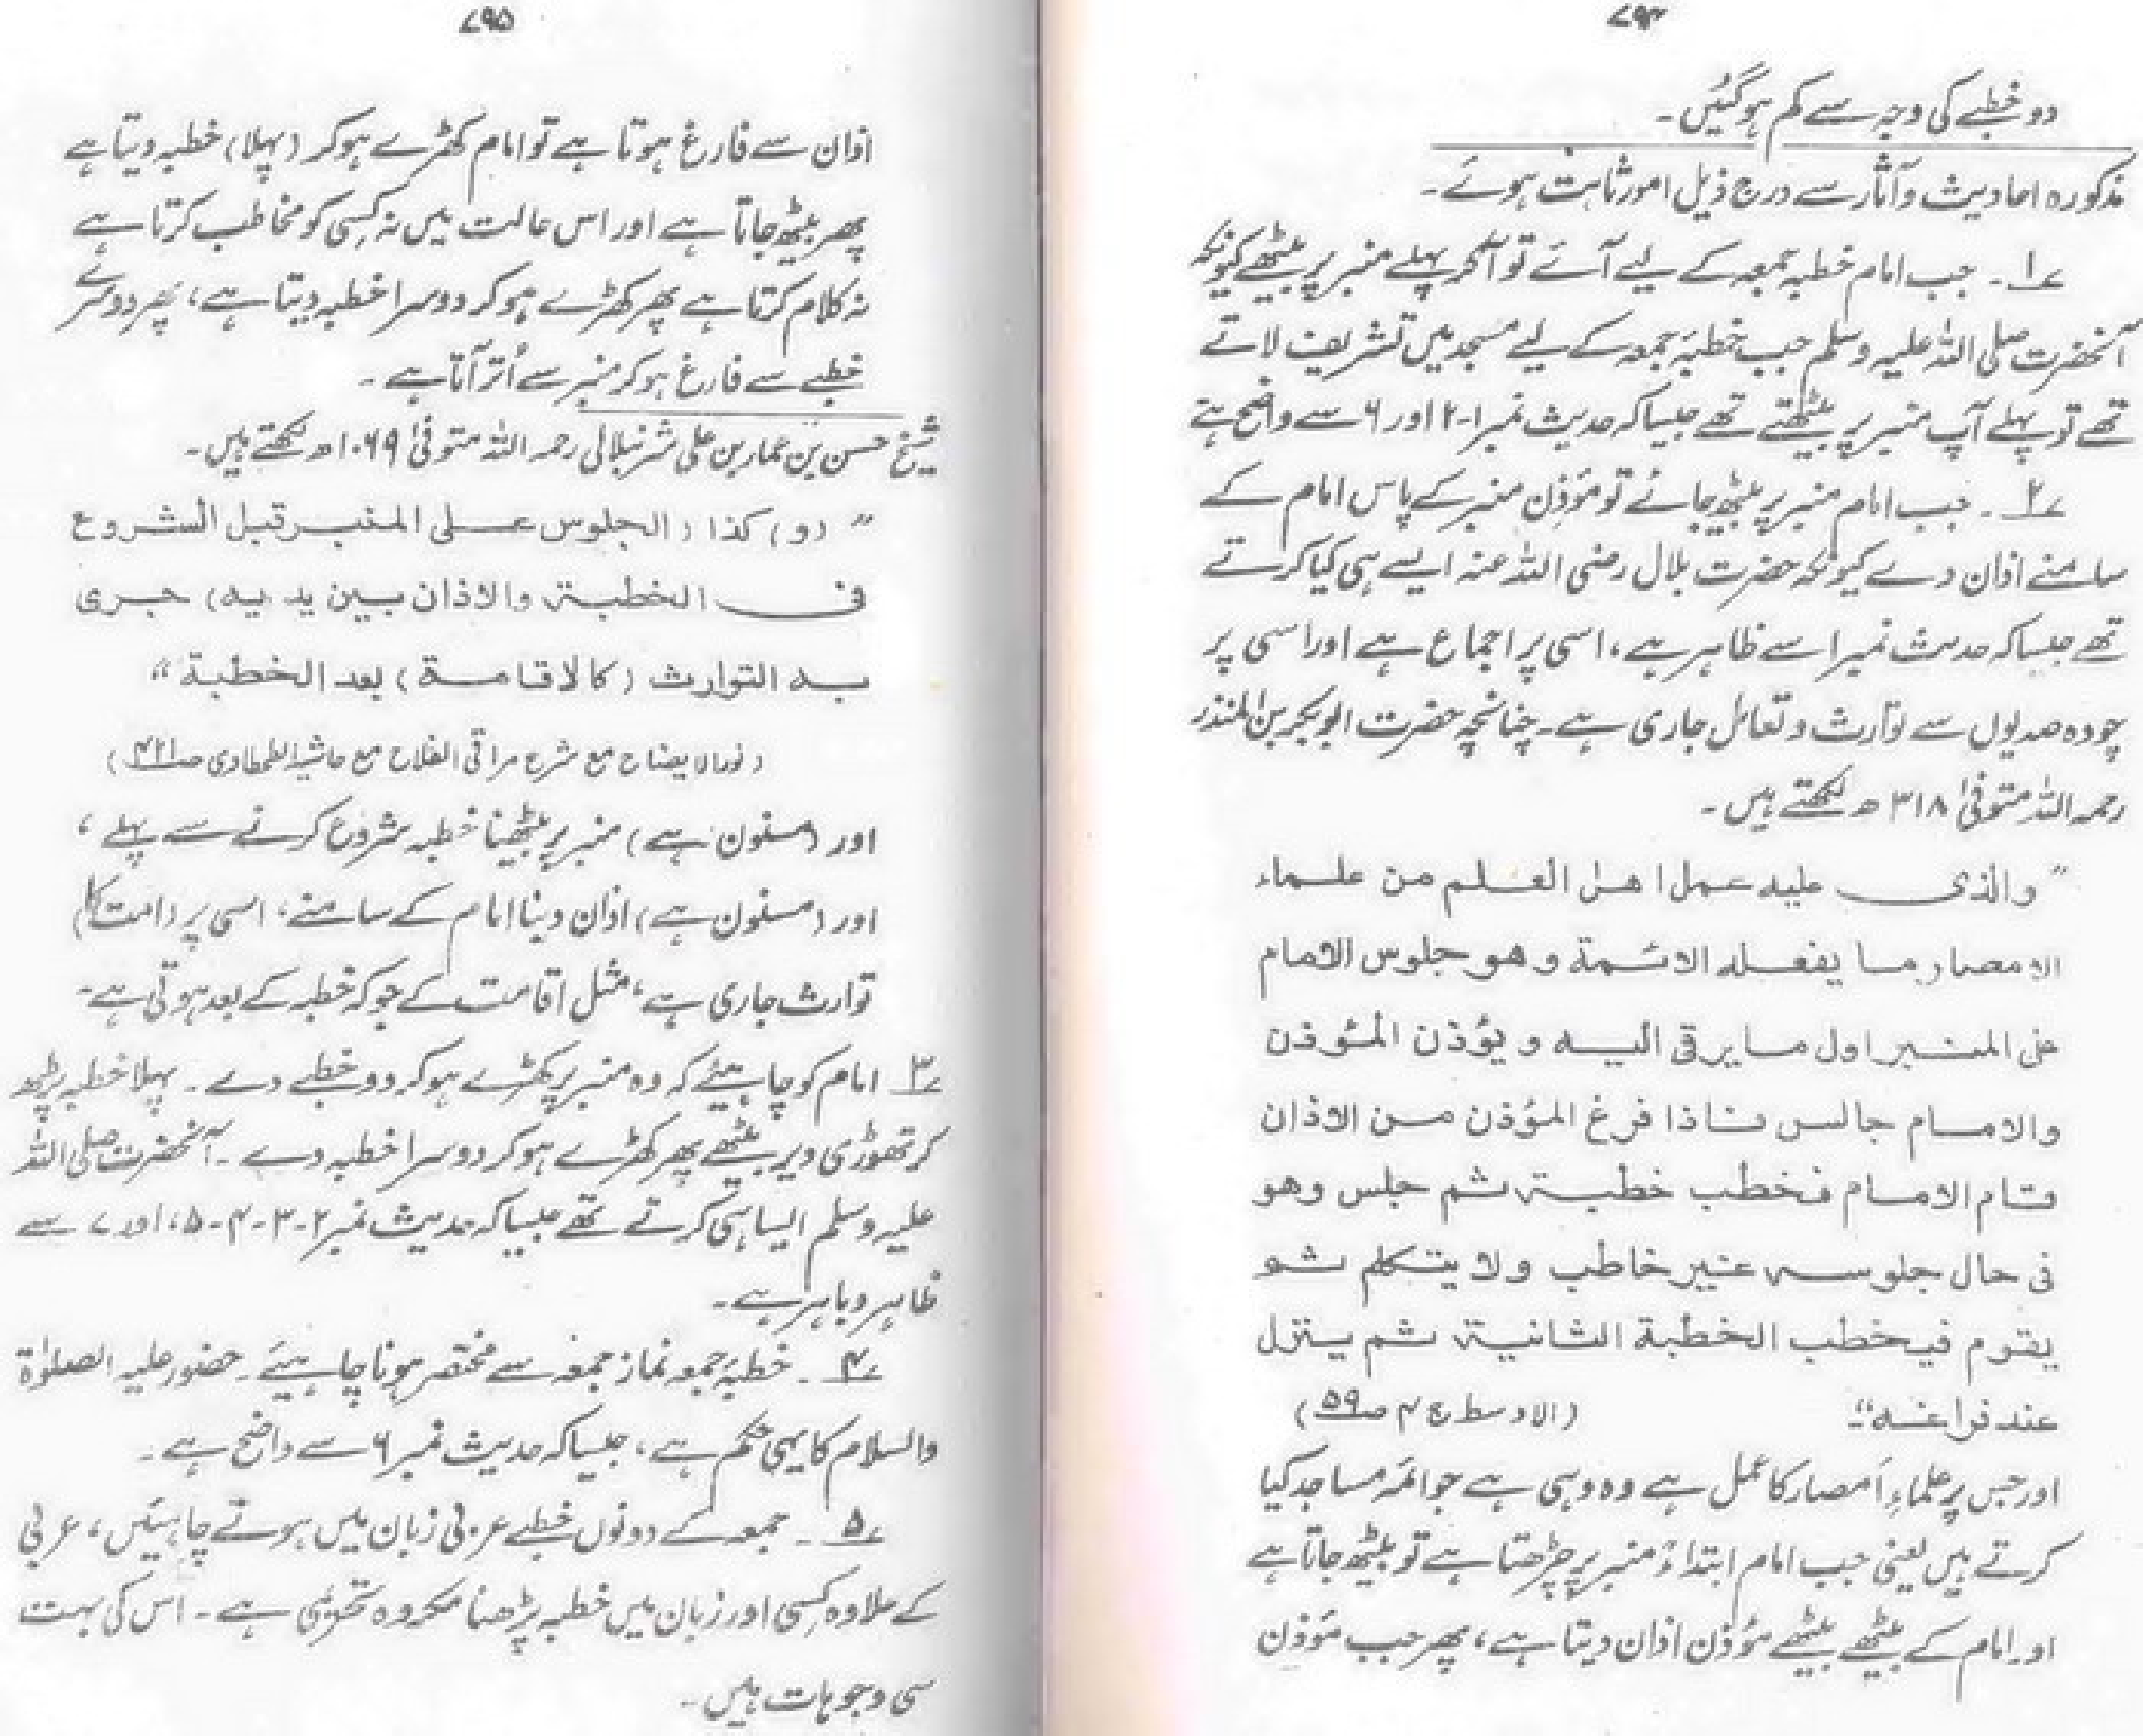 ۷۹۴
دو خطبے کی وجہ سے کم ہوگئیں۔
مذکورہ احادیث وآثار سے درج ذیل امور ثابت ہوئے۔
۱؎۔ جب امام خطبہ جمعہ کے لیے آئے تو آکر پہلے منبر پر بیٹھے کیونکہ
آنحضرت صلی اللہ علیہ وسلم جب خطبۂ جمعہ کے لیے مسجد میں تشریف لاتے
تھے تو پہلے آپ منبر پر بیٹھتے تھے جیسا کہ حدیث نمبر ۱-۲ اور ۶ سے واضح ہے
۲؎۔ جب امام منبر پر بیٹھ جائے تو مؤذن منبر کے پاس امام کے
سامنے اذان دے کیونکہ حضرت بلال رضی اللہ عنہ ایسے ہی کیا کرتے
تھے جیسا کہ حدیث نمبر ۱ سے ظاہر ہے، اسی پر اجماع ہے اور اسی پر
چودہ صدیوں سے توارث و تعامل جاری ہے۔ چنانچہ حضرت ابوبکر بن المنذر
رحمہ اللہ متوفیٰ ۳۱۸ ھ لکھتے ہیں۔
”والذی علیہ عمل اھل العلم من علماء
الامصار ما یفعلہ الائمۃ وھو جلوس الامام
علی المنبر اول ما یرقی الیہ ویؤذن المؤذن
والامام جالس فاذا فرغ المؤذن من الاذان
قام الامام فخطب خطبۃ ثم جلس وھو
فی حال جلوسہ غیر خاطب ولا یتکلم ثم
یقوم فیخطب الخطبۃ الثانیۃ ثم ینزل
عند فراغہ“۔ (الاوسط ج ۴ ص ۵۹)
اور جس پر علماءِ اَمصار کا عمل ہے وہ وہی ہے جو ائمہ مساجد کیا
کرتے ہیں یعنی جب امام ابتداءً منبر پر چڑھتا ہے تو بیٹھ جاتا ہے
اور امام کے بیٹھے بیٹھے مؤذن اذان دیتا ہے، پھر جب مؤذن
۷۹۵
اذان سے فارغ ہوتا ہے تو امام کھڑے ہوکر (پہلا) خطبہ دیتا ہے
پھر بیٹھ جاتا ہے اور اس حالت میں نہ کسی کو مخاطب کرتا ہے
نہ کلام کرتا ہے پھر کھڑے ہوکر دوسرا خطبہ دیتا ہے، پھر دوسرے
خطبے سے فارغ ہوکر منبر سے اُتر آتا ہے۔
شیخ حسن بن عمار بن علی شرنبلالی رحمہ اللہ متوفیٰ ۱۰۶۹ھ لکھتے ہیں۔
”(و) کذا (الجلوس علی المنبر قبل الشروع
فی الخطبۃ والاذان بین یدیہ) جری
بہ التوارث (کالاقامۃ) بعد الخطبۃ“
(نور الایضاح مع شرح مراقی الفلاح مع حاشیۃ الطحطاوی ص ۴۲۱)
اور (مسنون ہے) منبر پر بیٹھنا خطبہ شروع کرنے سے پہلے،
اور (مسنون ہے) اذان دینا امام کے سامنے، اسی پر (امت کا)
توارث جاری ہے، مثل اقامت کے جو کہ خطبہ کے بعد ہوتی ہے۔
۳؎ امام کو چاہیئے کہ وہ منبر پر کھڑے ہوکر دو خطبے دے۔ پہلا خطبہ پڑھ
کر تھوڑی دیر بیٹھے پھر کھڑے ہوکر دوسرا خطبہ دے۔ آنحضرت صلی اللہ
علیہ وسلم ایسا ہی کرتے تھے جیسا کہ حدیث نمبر ۲-۳-۴-۵، اور ۷ سے
ظاہر و باہر ہے۔
۴؎۔ خطبۂ جمعہ نماز جمعہ سے مختصر ہونا چاہیئے۔ حضور علیہ الصلوٰۃ
والسلام کا یہی حکم ہے، جیسا کہ حدیث نمبر ۶ سے واضح ہے۔
۵؎۔ جمعہ کے دونوں خطبے عربی زبان میں ہونے چاہیئیں، عربی
کے علاوہ کسی اور زبان میں خطبہ پڑھنا مکروہ تحریمی ہے۔ اس کی بہت
سی وجوہات ہیں۔